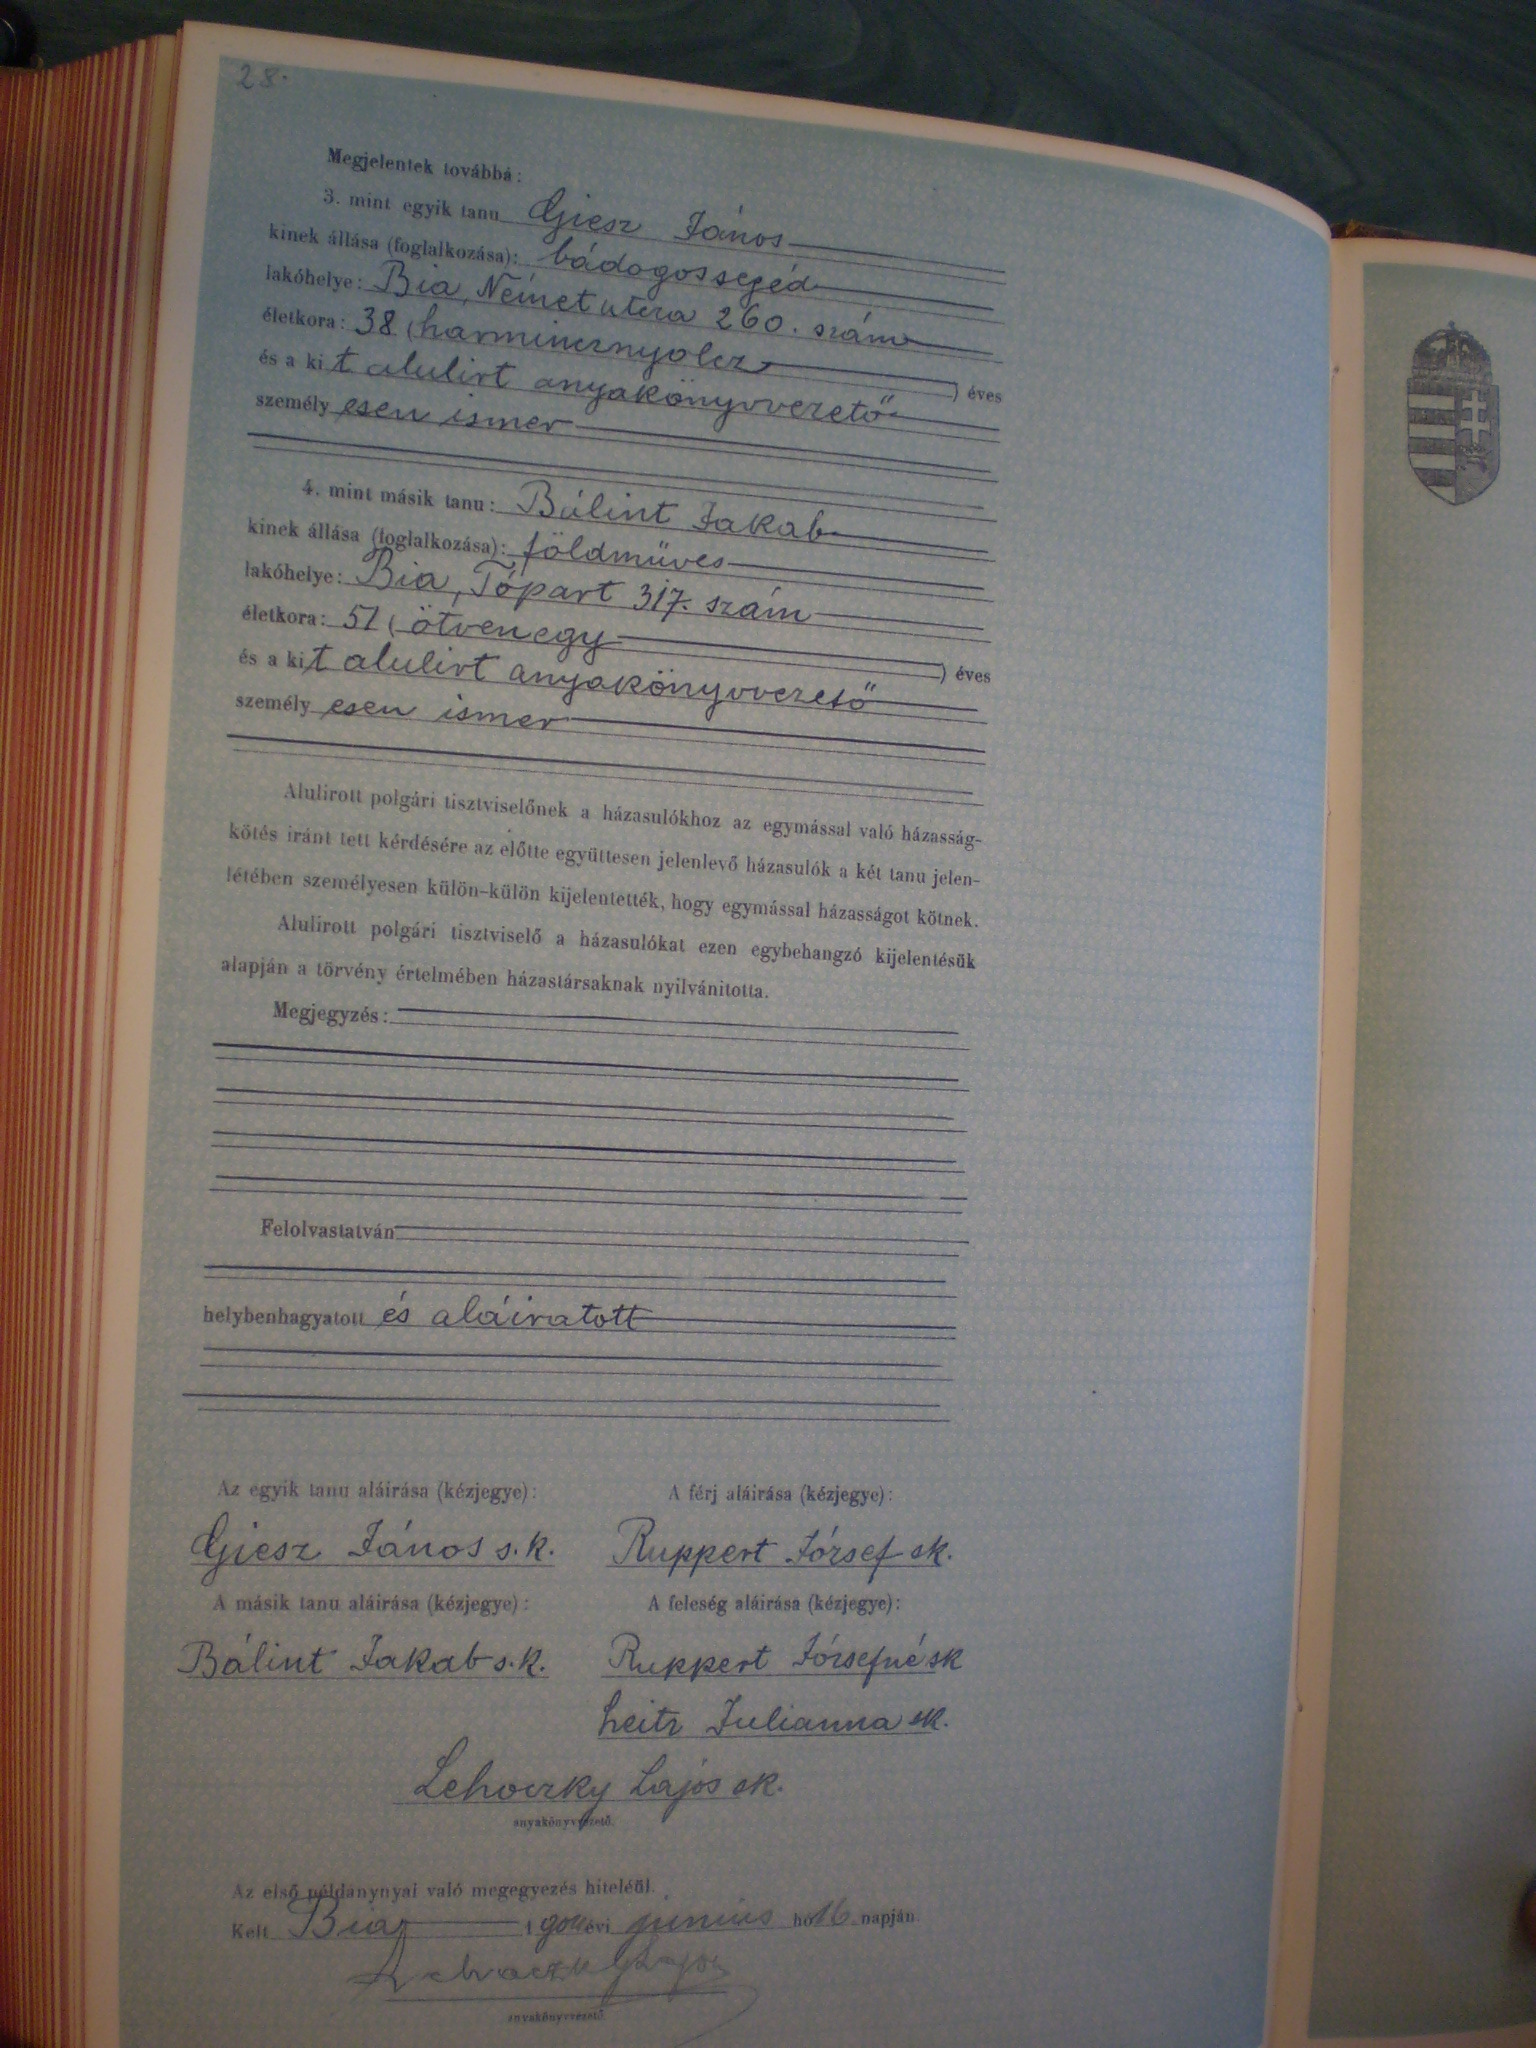 28.
Megjelentek továbbá:
3. mint egyik tanu Giesz János
kinek állása (foglalkozása): bádogossegéd
lakóhelye: Bia, Német utcza 260. szám
életkora: 38 (harmincznyolcz) éves
és a kit alulirt anyakönyvvezető
személyesen ismer
4. mint másik tanu: Bálint Jakab
kinek állása (foglalkozása): földmüves
lakóhelye: Bia, Tópart 317. szám
életkora: 51 (ötvenegy) éves
és a kit alulirt anyakönyvvezető
személyesen ismer
Alulirott polgári tisztviselőnek a házasulókhoz az egymással való házasság-
kötés iránt tett kérdésére az előtte együttesen jelenlevő házasulók a két tanu jelen-
létében személyesen külön-külön kijelentették, hogy egymással házasságot kötnek.
Alulirott polgári tisztviselő a házasulókat ezen egybehangzó kijelentésük
alapján a törvény értelmében házastársaknak nyilvánitotta.
Megjegyzés:
Felolvastatván
helybenhagyatott és aláiratott
Az egyik tanu aláirása (kézjegye): A férj aláirása (kézjegye):
Giesz János s.k. Ruppert József sk.
A másik tanu aláirása (kézjegye): A feleség aláirása (kézjegye):
Bálint Jakab s.k. Ruppert Józsefné sk
Leitz Julianna sk.
Lehoczky Lajos sk.
anyakönyvvezető.
Az első példánynyal való megegyezés hiteléül.
Kelt Bia, évi junius hó 16 napján
Lehoczky Lajos
anyakönyvvezető.